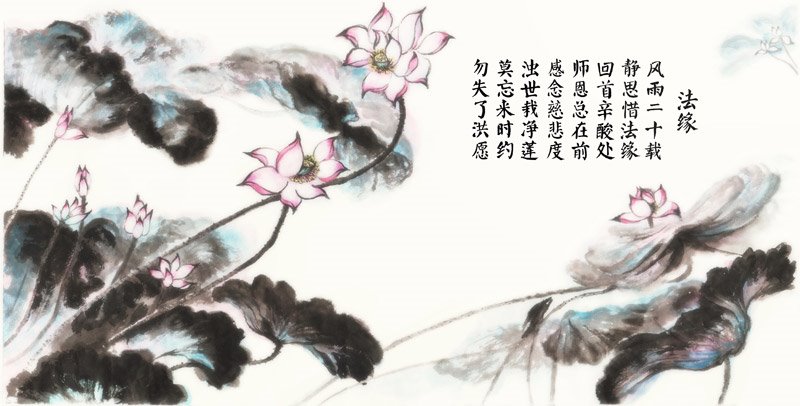 法缘
风雨二十载
静思惜法缘
回首辛酸处
师恩总在前
感念慈悲度
浊世栽净莲
莫忘来时约
勿失了洪愿